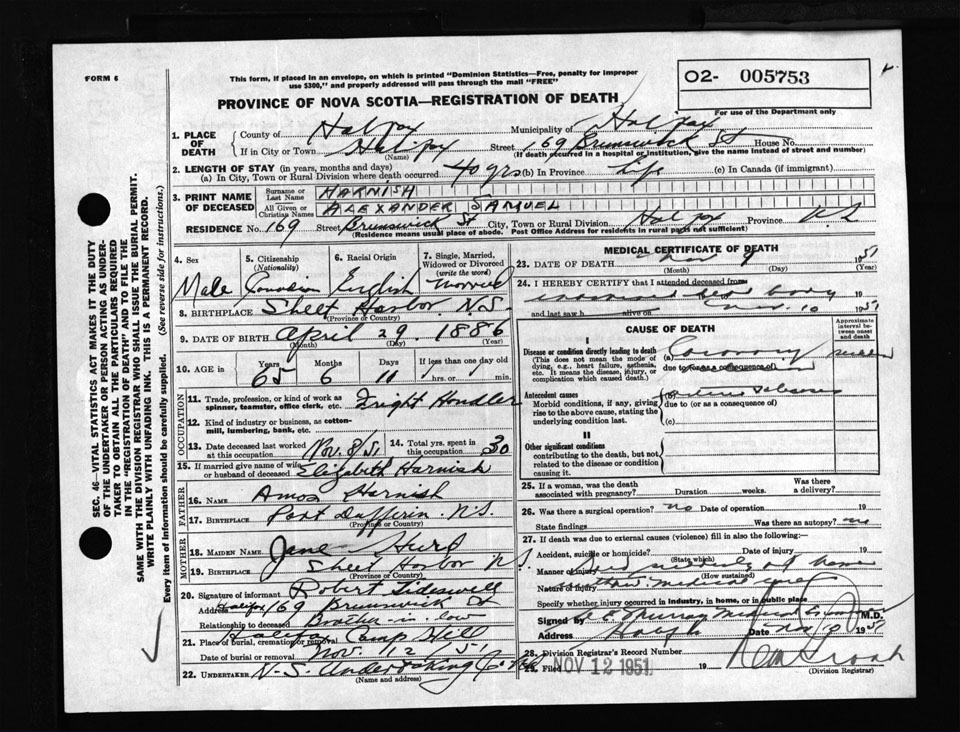 FORM 6
This form, if placed in an envelope, on which is printed "Dominion Statistics—Free, penalty for improper
use $300," and properly addressed will pass through the mail "FREE"
02- 005753
PROVINCE OF NOVA SCOTIA—REGISTRATION OF DEATH
For use of the Department only
1. PLACE OF DEATH
County of Halifax Municipality of Halifax
If in City or Town Halifax Street 169 Brunswick St House No.
(Name) (If death occurred in a hospital or institution, give the name instead of street and number)
2. LENGTH OF STAY (in years, months and days)
(a) In City, Town or Rural Division where death occurred 40 yrs (b) In Province Life (c) In Canada (if immigrant)
3. PRINT NAME OF DECEASED
Surname or Last Name HARNISH
All Given or Christian Names ALEXANDER SAMUEL
RESIDENCE No. 169 Street Brunswick St City, Town or Rural Division Halifax Province N.S.
(Residence means usual place of abode. Post Office Address for residents in rural parts not sufficient)
4. Sex 5. Citizenship (Nationality) 6. Racial Origin 7. Single, Married, Widowed or Divorced (write the word)
Male Canadian English Married
8. BIRTHPLACE Sheet Harbor N.S.
(Province or Country)
9. DATE OF BIRTH April 29 1886
(Month) (Day) (Year)
10. AGE in Years Months Days If less than one day old
65 6 11 hrs. or min.
OCCUPATION
11. Trade, profession, or kind of work as spinner, teamster, office clerk, etc. Fright Handler
12. Kind of industry or business, as cotton-mill, lumbering, bank, etc.
13. Date deceased last worked at this occupation Nov. 8/51 14. Total yrs. spent in this occupation 30
15. If married give name of wife or husband of deceased Elizabeth Harnish
FATHER
16. NAME Amos Harnish
17. BIRTHPLACE Port Dufferin N.S.
(Province or Country)
MOTHER
18. MAIDEN NAME Jane Hurd
19. BIRTHPLACE Sheet Harbor N.S.
(Province or Country)
20. Signature of informant Robert Tideswell
Address Halifax 169 Brunswick St
Relationship to deceased Brother-in-law
21. Place of burial, cremation or removal Halifax Camp Hill
Date of burial or removal Nov. 12/51
22. UNDERTAKER N.S. Undertaking Co Ltd
(Name and address)
MEDICAL CERTIFICATE OF DEATH
23. DATE OF DEATH Nov 9 1951
(Month) (Day) (Year)
24. I HEREBY CERTIFY that I attended deceased from
examined dead body 19
and last saw h alive on Nov. 10 1951
CAUSE OF DEATH
Approximate interval between onset and death
I
Disease or condition directly leading to death (a) Coronary sudden
(This does not mean the mode of dying, e.g., heart failure, asthenia, etc. It means the disease, injury, or complication which caused death.)
due to (or as a consequence of)
Antecedent causes (b)
Morbid conditions, if any, giving rise to the above cause, stating the underlying condition last.
due to (or as a consequence of)
(c)
II
Other significant conditions
contributing to the death, but not related to the disease or condition causing it.
25. If a woman, was the death associated with pregnancy? Duration weeks. Was there a delivery?
26. Was there a surgical operation? no Date of operation
State findings Was there an autopsy? no
27. If death was due to external causes (violence) fill in also the following:—
Accident, suicide or homicide? Date of injury 19
(State which)
Manner of injury Died suddenly at home
(How sustained)
Nature of injury without medical care
Specify whether injury occurred in industry, in home, or in public place
Signed by Medical Examiner M.D.
Address Halifax Date Nov 10 1951
28. Division Registrar's Record Number
29. Filed NOV 12 1951 19
(Division Registrar)
SEC. 46—VITAL STATISTICS ACT MAKES IT THE DUTY
OF THE UNDERTAKER OR PERSON ACTING AS UNDER-
TAKER TO OBTAIN ALL THE PARTICULARS REQUIRED
IN THE "REGISTRATION OF DEATH" AND TO FILE THE
SAME WITH THE DIVISION REGISTRAR WHO SHALL ISSUE THE BURIAL PERMIT.
WRITE PLAINLY WITH UNFADING INK. THIS IS A PERMANENT RECORD.
Every item of information should be carefully supplied. (See reverse side for instructions.)